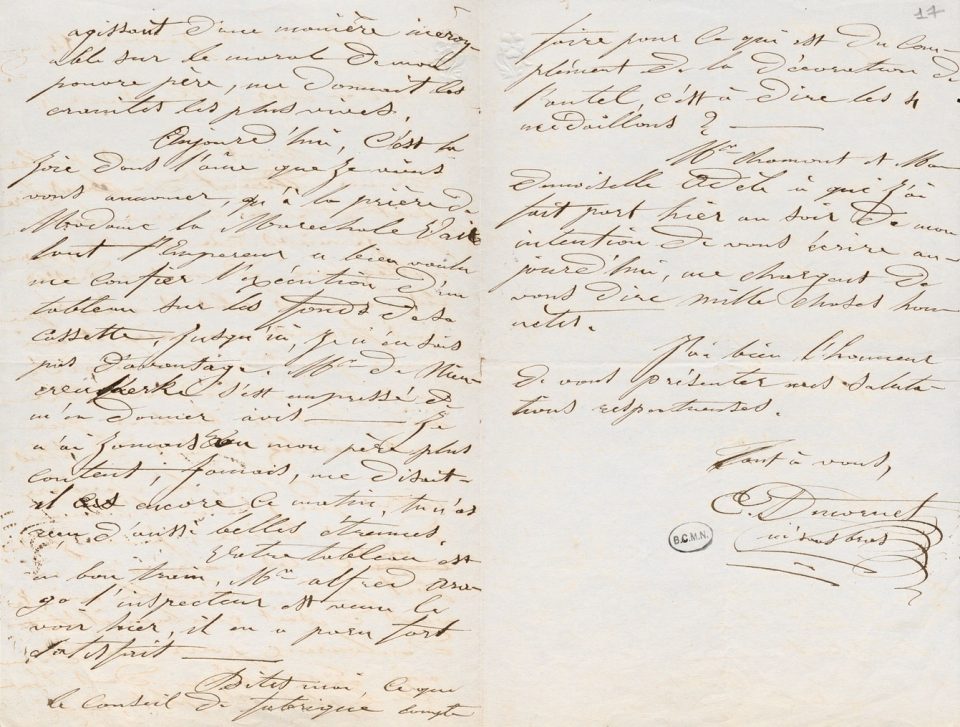 agissant d'une manière incroy-
able sur le moral de mon
pauvre père, me donnait les
craintes les plus vives.
Aujourd'hui, c'est la
joie dans l'âme que je viens
vous annoncer, qu'à la prière de
Madame la Marechale Vail-
lant l'Empereur a bien voulu
me confier l'exécution d'un
tableau sur les fonds de sa
cassette, jusqu'ici, je n'en sais
pas d'avantage. Mr. de Nieu-
werkerke s'est empressé de
m'en donner avis — Je
n'ai jamais vu mon père plus
content; jamais, me disait-
il encore ce matin, tu n'as
reçu d'aussi belles étrennes.
Votre tableau est
en bon train, Mr. alfred ara-
go l'inspecteur est venu le
voir hier, il en a paru fort
satisfait —
Dites moi, ce que
le conseil de fabrique compte
17
faire pour ce qui est du com-
plément de la décoration de
l'autel, c'est à dire les 4
medaillons ? —
Mr. Chomont et Ma-
demoiselle Adèle à qui j'ai
fait part hier au soir de mon
intention de vous écrire au-
jourd'hui, me chargent de
vous dire mille choses hon-
nêtes.
J'ai bien l'honneur
de vous présenter mes saluta-
tions respectueuses.
Tout à vous,
C. Ducornet
né sans bras
B.C.M.N.